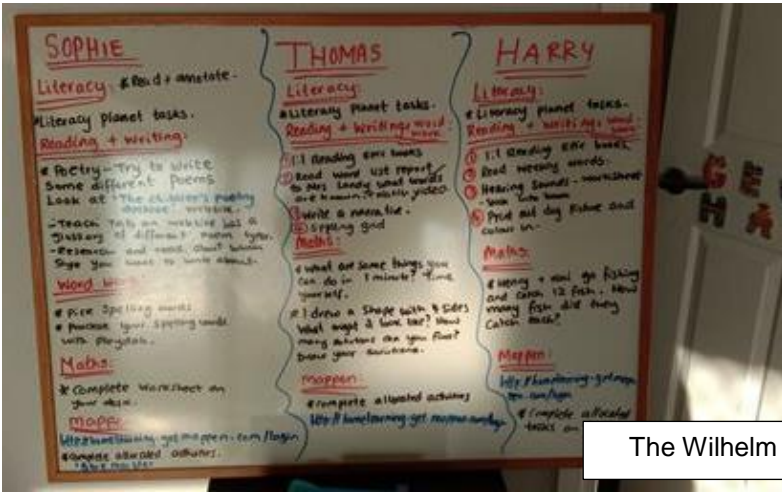 SOPHIE
Literacy: * Read + annotate.
* Literacy planet tasks.
Reading + Writing:
* Poetry - Try to write
Some different Poems
Look at "The children's Poetry
website.
- Teach on website has a
glossary of different Poem types.
- Research and read about
Style you want to write about.
Word
* Pick Spelling words
* Practise your Spelling words
with Playdoh.
Maths:
* Complete Worksheet on
your
mappen:
* complete allocated activities.
THOMAS
Literacy:
* Literacy planet tasks.
Reading + Writing + word
work
① 1:1 Reading Epic books
② Read word list report
to Mrs what words
are known + video
③ Write a narrative.
④ Spelling grid
Maths:
* What are some things you
can do in 1 minute? Time
yourself.
* I drew a Shape with 4 Sides
What might it look like? How
many solutions can you find?
Draw your solutions.
mappen:
* complete allocated activities
HARRY
Literacy:
* Literacy planet tasks.
Reading + Writing + word
work
① 1:1 Reading Epic books
② Read weekly words.
③ Hearing Sounds - worksheet
④ Print out and
colour in.
Maths:
* Henry + go fishing
and catch 12 fish. How
many fish did they
catch each?
Mappen:
* Complete allocated
tasks on
GE
HA
The Wilhelm